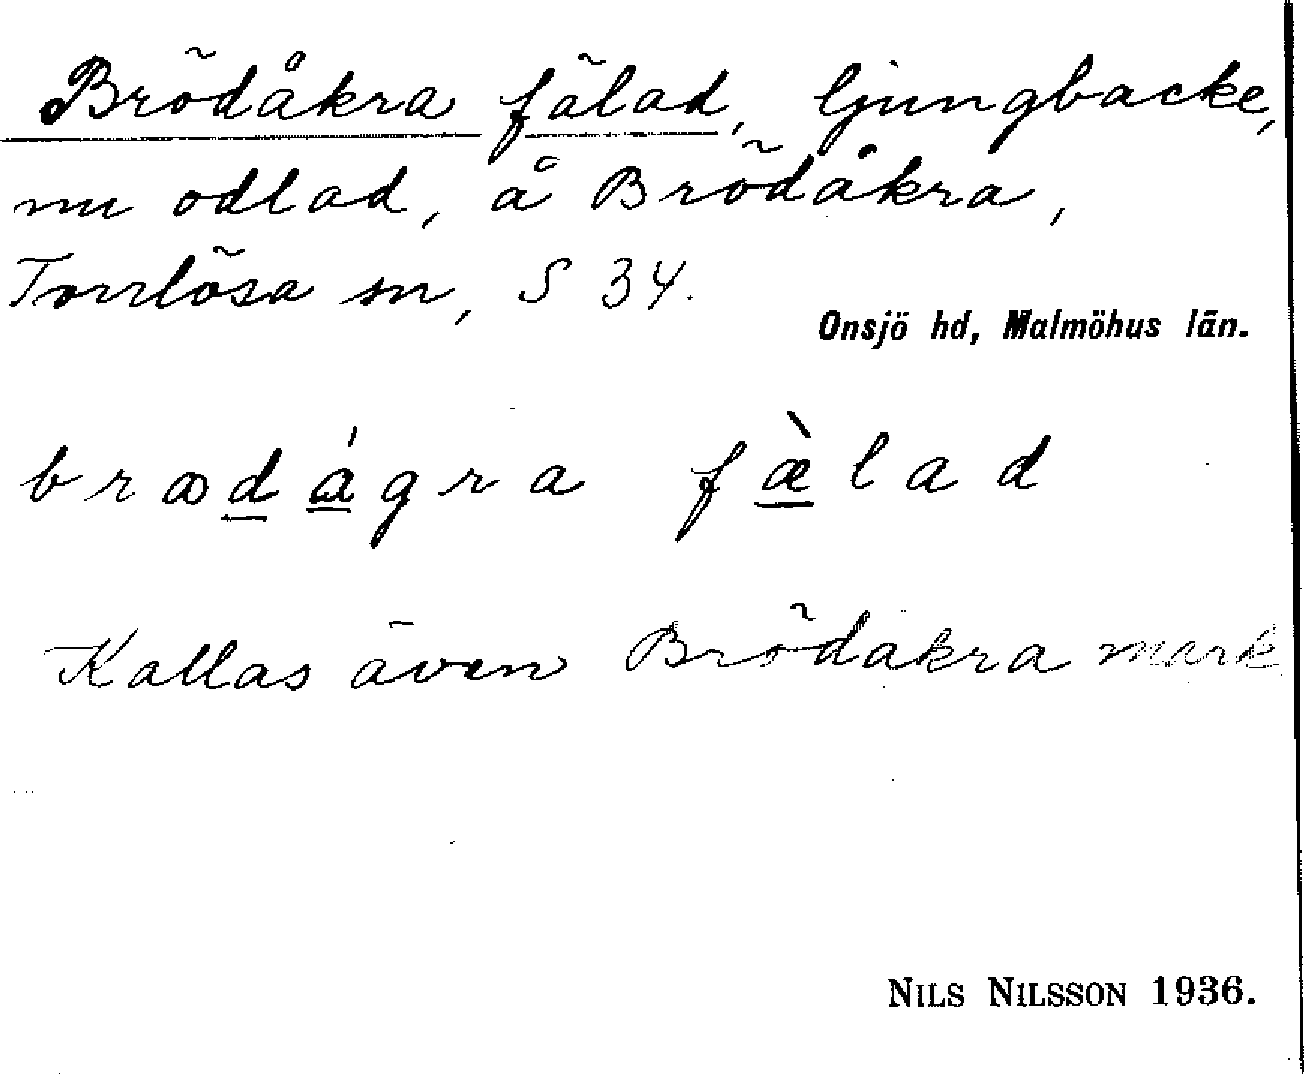 Brödåkra fälad, ljungbacke,
nu odlad, å Brödåkra,
Torrlösa sn, S 34.
Onsjö hd, Malmöhus län.
brꝏdágra fæ̀lad
Kallas även Brödåkra mark
NILS NILSSON 1936.